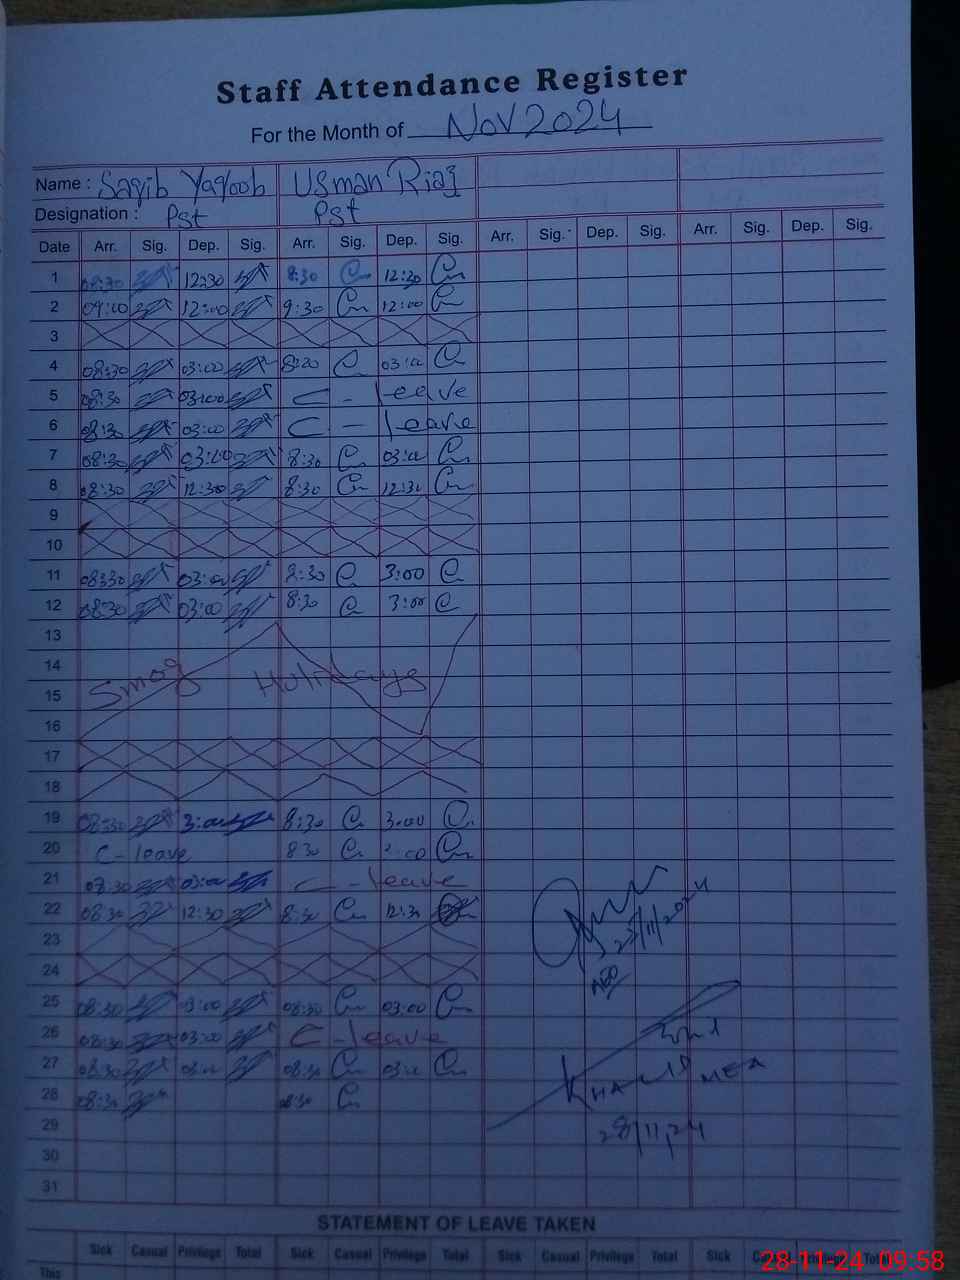 Staff Attendance Register
For the Month of Nov 2024
Name : Saqib Yaqoob Usman Riaz
Designation : Pst Pst
Date Arr. Sig. Dep. Sig. Arr. Sig. Dep. Sig. Arr. Sig. Dep. Sig. Arr. Sig. Dep. Sig.
1 08:30 12:30 8:30 12:30
2 09:00 12:00 9:30 12:00
3
4 08:30 03:00 8:30 03:00
5 08:30 03:00 C - leave
6 08:30 03:00 C - leave
7 08:30 03:00 8:30 03:00
8 08:30 12:30 8:30 12:30
9
10
11 08:30 03:00 8:30 3:00
12 08:30 03:00 8:30 3:00
13
14
15 Smog Holidays
16
17
18
19 08:30 3:00 8:30 3:00
20 C - leave 8:30
21 03:00 C - leave
22 08:30 12:30 8:30 12:30
23
23/11/2024
24
AEO
25 08:30 03:00 08:30 03:00
26 08:30 03:00 C - leave
27 08:30 03:00 08:30 03:00
KHALID MEA
28 08:30 08:30
29
28/11/24
30
31
STATEMENT OF LEAVE TAKEN
Sick Casual Privilege Total Sick Casual Privilege Total Sick Casual Privilege Total Sick Casual Privilege Total
This
28-11-24 09:58